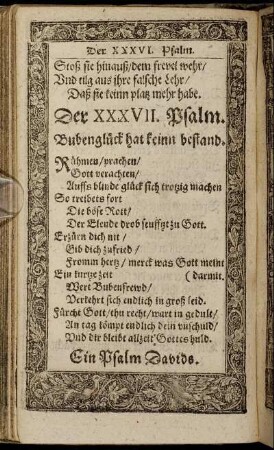 Der XXXVI. Psalm.
Stoß sie hinauß/dem frevel wehr/
Vnd tilg aus ihre falsche Lehr/
Daß sie keinn platz mehr habe.
Der XXXVII. Psalm.
Bubenglück hat keinn bestand.
Rühmen/prachen/
Gott verachten/
Auffs blinde glück sich trotzig machen
So treibets fort
Die böse Rott/
Der Elende drob seufftzt zu Gott.
Erzürn dich nit/
Gib dich zufried/
Fromm hertz/ merck was Gott meint
Ein kurtze zeit (darmit.
Wert Bubenfrewd/
Verkehrt sich endlich in groß leid.
Fürcht Gott/thu recht/wart in gedult/
An tag kömpt endlich dein vnschuld/
Vnd dir bleibt allzeit Gottes huld.
Ein Psalm Davids.